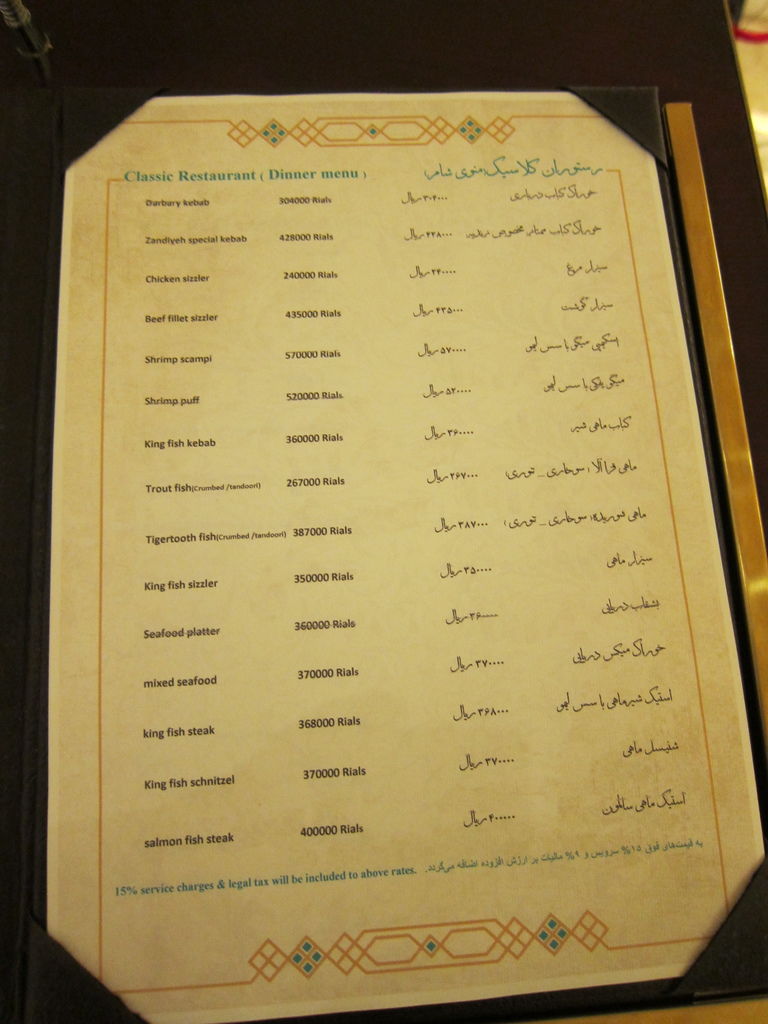 Classic Restaurant ( Dinner menu ) رستوران کلاسیک (منوی شام)
Darbary kebab 304000 Rials ۳۰۴۰۰۰ ریال خوراک کباب درباری
Zandiyeh special kebab 428000 Rials ۴۲۸۰۰۰ ریال خوراک کباب ممتاز مخصوص زندیه
Chicken sizzler 240000 Rials ۲۴۰۰۰۰ ریال سیزلر مرغ
Beef fillet sizzler 435000 Rials ۴۳۵۰۰۰ ریال سیزلر گوشت
Shrimp scampi 570000 Rials ۵۷۰۰۰۰ ریال اسکمپی میگو با سس لیمو
Shrimp puff 520000 Rials ۵۲۰۰۰۰ ریال میگو پفکی با سس لیمو
King fish kebab 360000 Rials ۳۶۰۰۰۰ ریال کباب ماهی شیر
Trout fish(Crumbed /tandoori) 267000 Rials ۲۶۷۰۰۰ ریال ماهی قزل آلا (سوخاری _ تنوری)
Tigertooth fish(Crumbed /tandoori) 387000 Rials ۳۸۷۰۰۰ ریال ماهی شوریده (سوخاری _ تنوری)
King fish sizzler 350000 Rials ۳۵۰۰۰۰ ریال سیزلر ماهی
Seafood platter 360000 Rials ۳۶۰۰۰۰ ریال بشقاب دریایی
mixed seafood 370000 Rials ۳۷۰۰۰۰ ریال خوراک میکس دریایی
king fish steak 368000 Rials ۳۶۸۰۰۰ ریال استیک شیرماهی با سس لیمو
King fish schnitzel 370000 Rials ۳۷۰۰۰۰ ریال شنیسل ماهی
salmon fish steak 400000 Rials ۴۰۰۰۰۰ ریال استیک ماهی سالمون
15% service charges & legal tax will be included to above rates. به قیمت‌های فوق ۱۵% سرویس و ۹% مالیات بر ارزش افزوده اضافه می‌گردد.